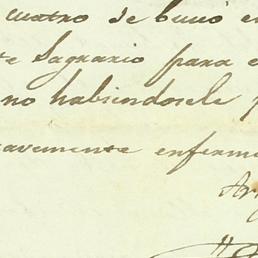 cuatro de
te Sagrario para e
no habiendosele
avemente enferm
Ar